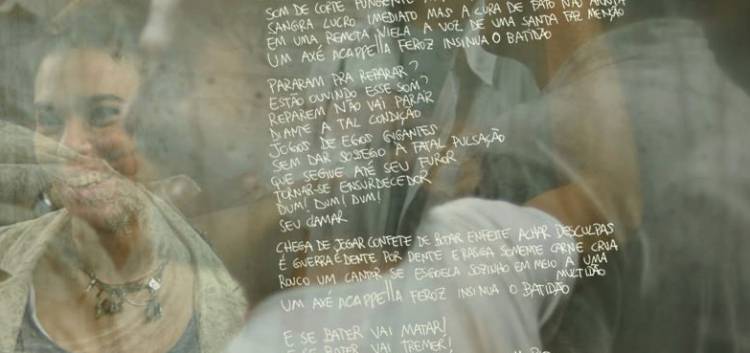 SOM DE CORTE PUNGENTE
SANGRA LUCRO IMEDIATO MAS A CURA DE FATO NÃO
EM UMA REMOTA VIELA A VOZ DE UMA SANTA FAZ MENÇÃO
UM AXÉ ACAPPELLA FEROZ INSINUA O BATIDÃO
PARARAM PRA REPARAR?
ESTÃO OUVINDO ESSE SOM?
REPAREM NÃO VAI PARAR
DIANTE A TAL CONDIÇÃO
JOGOS DE EGOS GIGANTES
SEM DAR SOSSEGO À FATAL PULSAÇÃO
QUE SEGUE ATÉ SEU FUROR
TORNAR-SE ENSURDECEDOR
DUM! DUM! DUM!
SEU CLAMAR
CHEGA DE JOGAR CONFETE DE BOTAR ENFEITE ACHAR DESCULPAS
É GUERRA É DENTE POR DENTE E RASGA SOMENTE CARNE CRUA
ROUCO UM CANTOR SE ESGOELA SOZINHO EM MEIO A UMA
MULTIDÃO
UM AXÉ ACAPPELLA FEROZ INSINUA O BATIDÃO
E SE BATER VAI MATAR!
E SE BATER VAI TREMER!